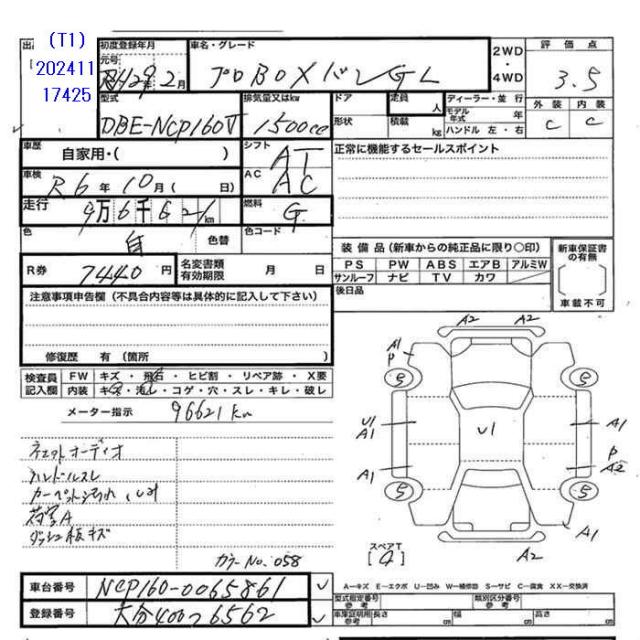 (T1)
202411
17425
初度登録年月
元号
H29年2月
車名・グレード
プロBOXバンGL
2WD
4WD
評価点
3.5
型式
DBE-NCP160V
排気量又はkw
1500cc
ドア
形状
定員 人
積載 kg
ディーラー・並行
モデル年式 年
ハンドル 左・右
外装 内装
C C
車歴
自家用・( )
シフト
AT
正常に機能するセールスポイント
車検
R6年10月( 日)
AC
AC
走行
9万6千621km
燃料
G
色
白
色替
色コード
装備品(新車からの純正品に限り〇印)
PS PW ABS エアB アルミW
サンルーフ ナビ TV カワ
新車保証書の有無
車載不可
後日品
R券
7440円
名変書類
有効期限
月 日
注意事項申告欄(不具合内容等は具体的に記入して下さい)
修復歴 有(箇所 )
検査員記入欄
FW キズ・飛石・ヒビ割・リペア跡・X要
内装 キズ・汚れ・コゲ・穴・スレ・キレ・破レ
メーター指示
96621km
ハンドルスレ
荷室A
ダッシュ板キズ
カラーNo.058
A2 A2
A1
P
U1
A1
U1
A1
A1
P
A2
A1
A2
スペアT
[4]
車台番号
NCP160-0065861
登録番号
大分400つ6562
A-キズ E-エクボ U-凹み W-補修跡 S-サビ C-腐食 XX-交換済
型式指定番号
参考
類別区分番号
参考
車庫証明用
参考
長さ cm
幅 cm
高さ cm